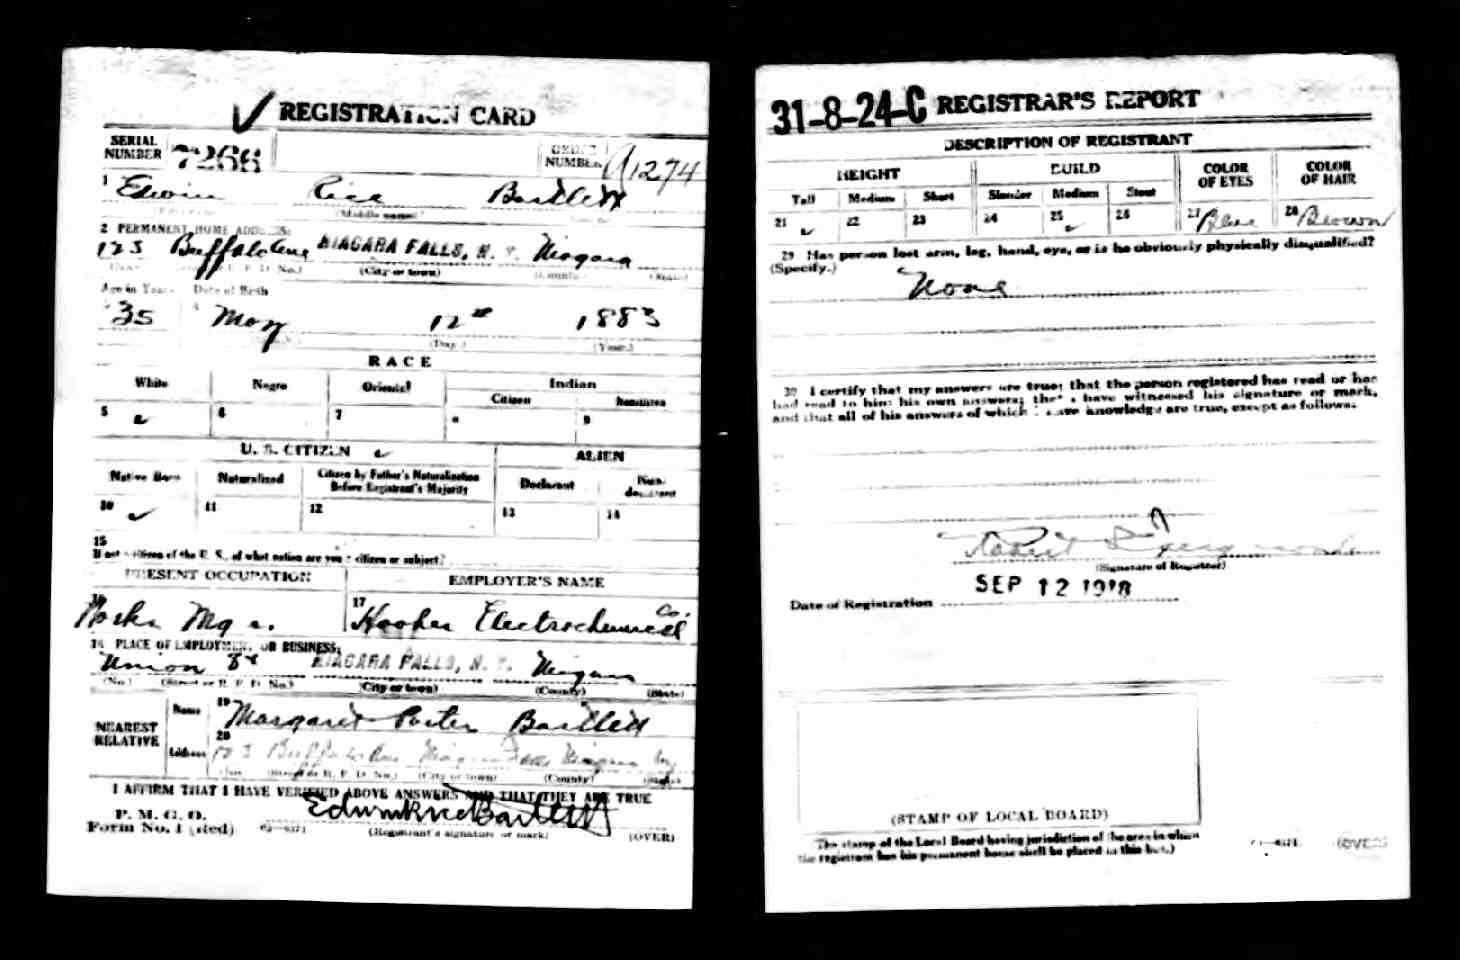 REGISTRATION CARD
SERIAL NUMBER 7266 ORDER NUMBER A1274
1 Edwin Rice Bartlett
(Middle name)
2 PERMANENT HOME ADDRESS:
123 Buffalo Ave NIAGARA FALLS, N. Y. Niagara
(No.) R. F. D. No.) (City or town) (County) (State)
Age in Years Date of Birth
35 May 12 1883
(Day.) (Year.)
RACE
White Negro Oriental Indian
Citizen Noncitizen
5 ✓ 6 7 8 9
U. S. CITIZEN ✓ ALIEN
Native Born Naturalized Citizen by Father's Naturalization Before Registrant's Majority Declarant Non-declarant
10 ✓ 11 12 13 14
15
If not a citizen of the U. S., of what nation are you a citizen or subject?
PRESENT OCCUPATION EMPLOYER'S NAME
16 Works Mgr. 17 Hooker Electrochemical Co.
18 PLACE OF EMPLOYMENT OR BUSINESS:
Union St NIAGARA FALLS, N. Y. Niagara
(No.) (Street or R. F. D. No.) (City or town) (County) (State)
NEAREST RELATIVE
Name 19 Margaret Porter Bartlett
Address 20 123 Buffalo Ave Niagara Falls Niagara NY
(No.) (Street or R. F. D. No.) (City or town) (County) (State)
I AFFIRM THAT I HAVE VERIFIED ABOVE ANSWERS AND THAT THEY ARE TRUE
P. M. G. O.
Form No. 1 (Red) Edwin Rice Bartlett
(Registrant's signature or mark) (OVER)
31-8-24-C REGISTRAR'S REPORT
DESCRIPTION OF REGISTRANT
HEIGHT BUILD COLOR OF EYES COLOR OF HAIR
Tall Medium Short Slender Medium Stout
21 ✓ 22 23 24 25 ✓ 26 27 Blue 28 Brown
29 Has person lost arm, leg, hand, eye, or is he obviously physically disqualified?
(Specify.) None
30 I certify that my answers are true; that the person registered has read or has
had read to him his own answers; that I have witnessed his signature or mark,
and that all of his answers of which I have knowledge are true, except as follows:
Robert
(Signature of Registrar)
Date of Registration SEP 12 1918
(STAMP OF LOCAL BOARD)
The stamp of the Local Board having jurisdiction of the area in which
the registrant has his permanent home shall be placed in this box.)
(OVER)